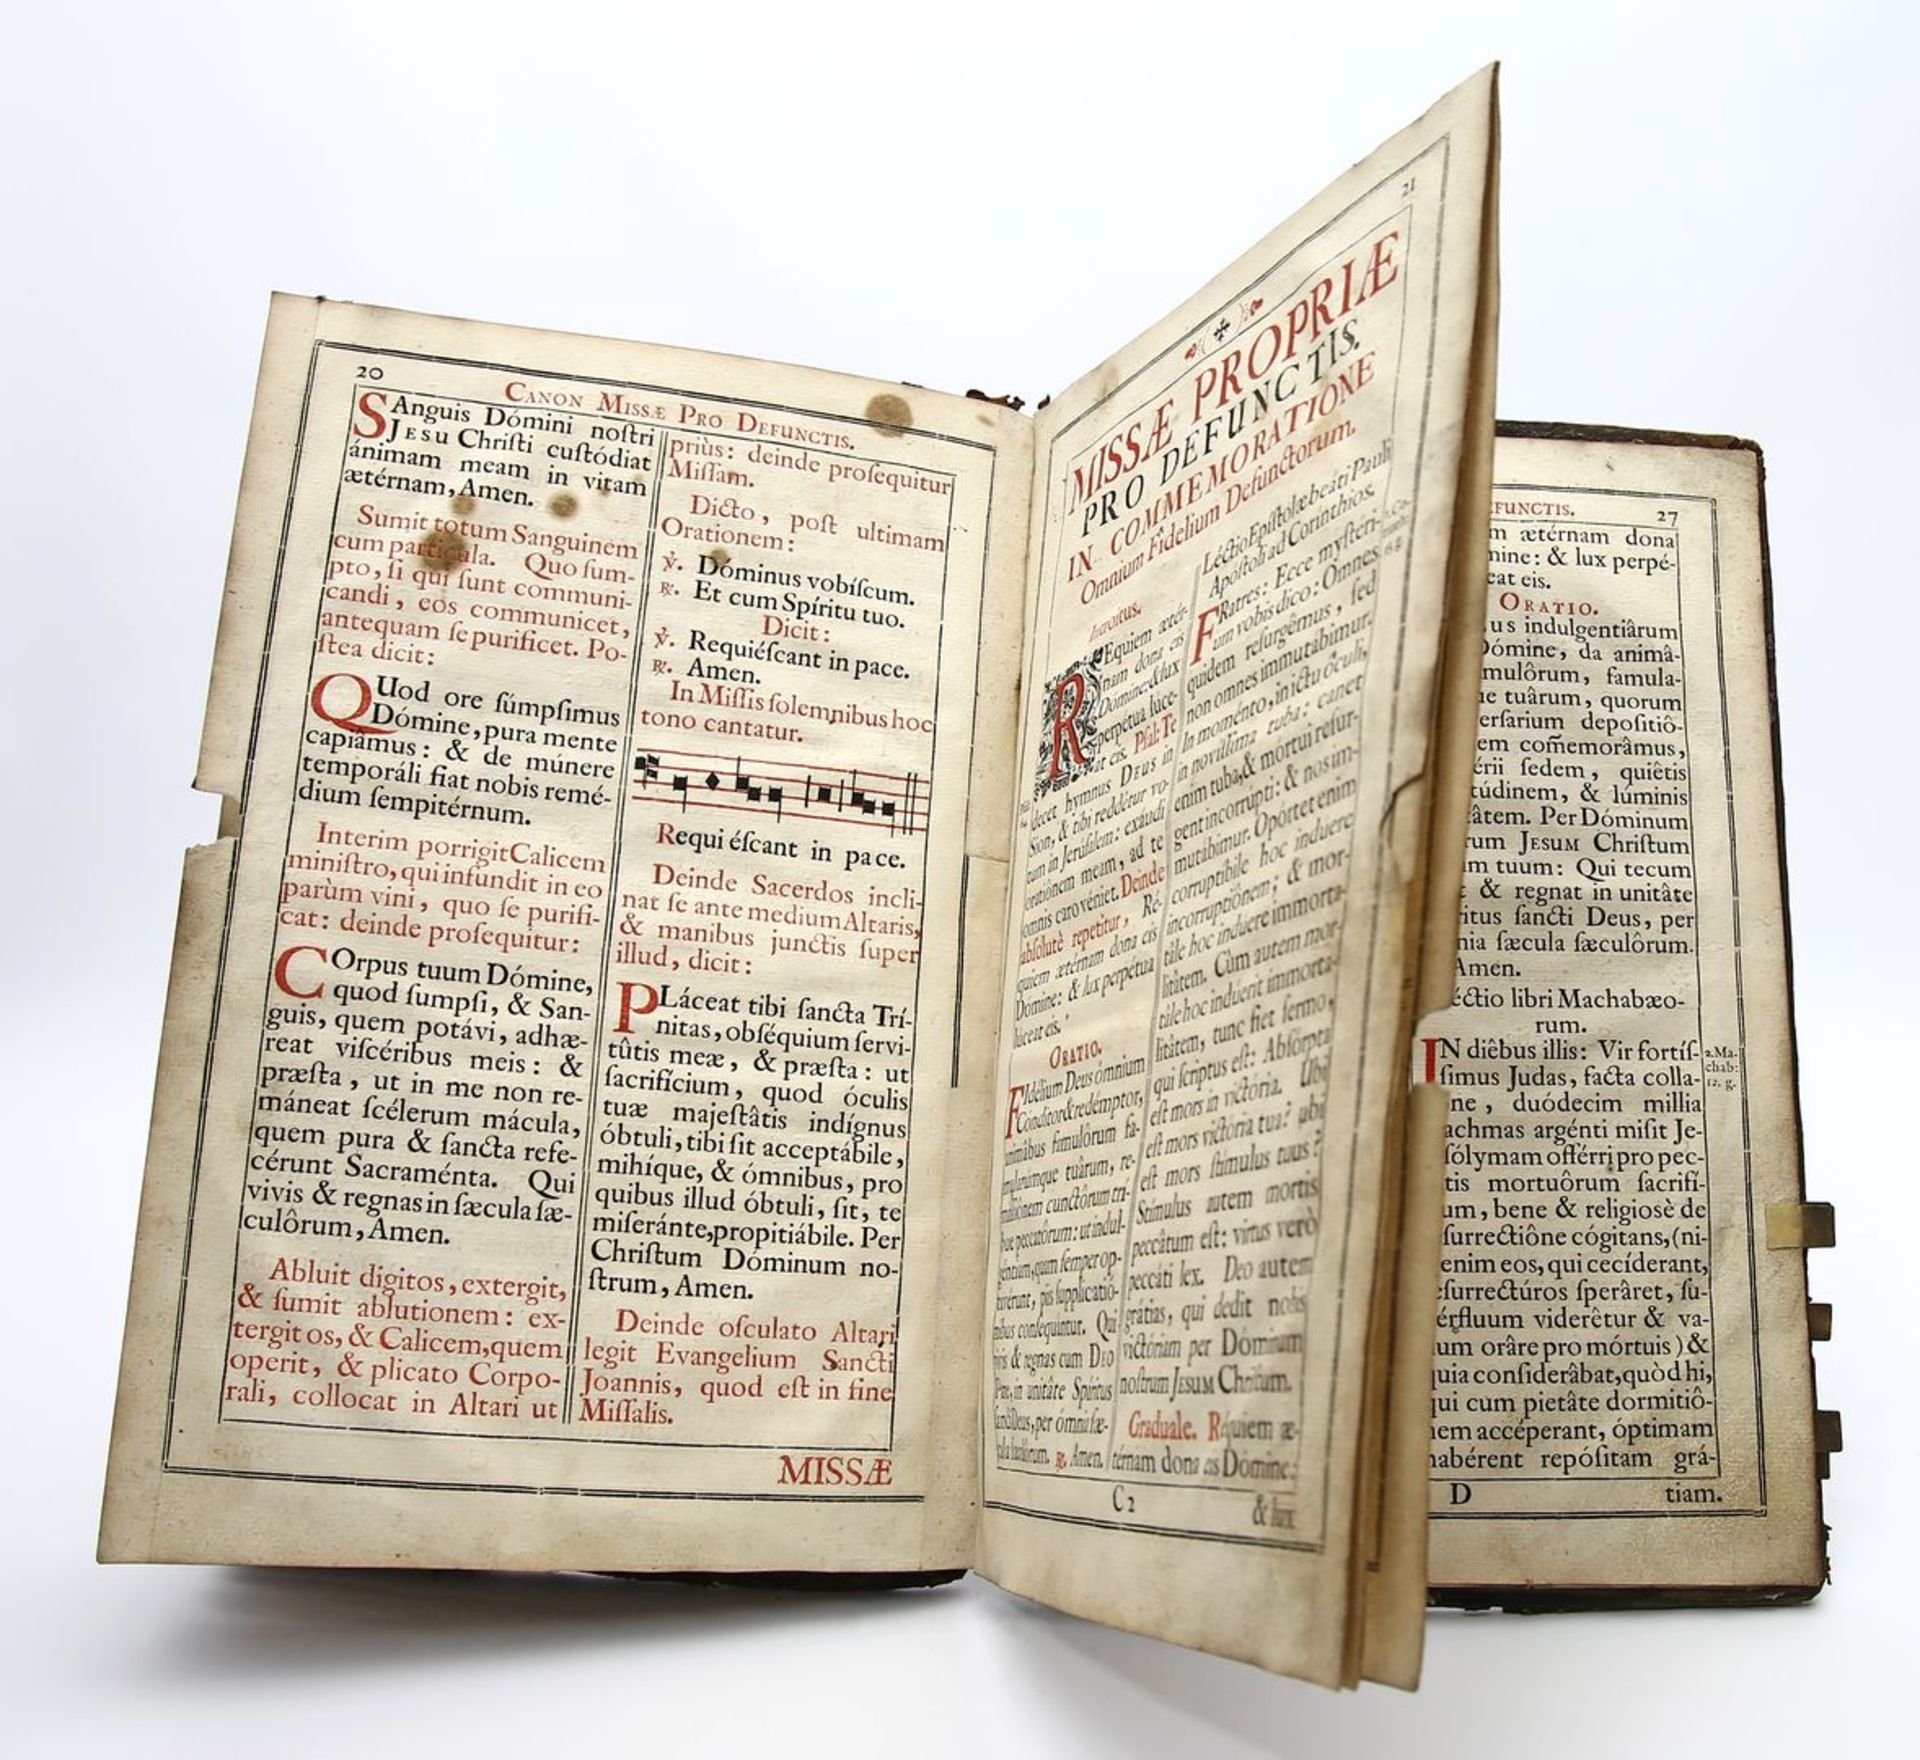 20
CANON MISSÆ PRO DEFUNCTIS.
SAnguis Dómini noſtri
JESU Chriſti cuſtódiat
ánimam meam in vitam
ætérnam, Amen.
Sumit totum Sanguinem
cum particula. Quo ſum-
pto, ſi qui ſunt communi-
candi, eos communicet,
antequam ſe purificet. Po-
ſtea dicit:
QUod ore ſúmpſimus
Dómine, pura mente
capiâmus: & de múnere
temporáli fiat nobis remé-
dium ſempitérnum.
Interim porrigit Calicem
miniſtro, qui infundit in eo
parùm vini, quo ſe purifi-
cat: deinde proſequitur:
COrpus tuum Dómine,
quod ſumpſi, & San-
guis, quem potávi, adhæ-
reat viſcéribus meis: &
præſta, ut in me non re-
máneat ſcélerum mácula,
quem pura & ſancta refe-
cérunt Sacraménta. Qui
vivis & regnas in ſæcula ſæ-
culôrum, Amen.
Abluit digitos, extergit,
& ſumit ablutionem: ex-
tergit os, & Calicem, quem
operit, & plicato Corpo-
rali, collocat in Altari ut
priùs: deinde proſequitur
Miſſam.
Dicto, poſt ultimam
Orationem:
℣. Dóminus vobíſcum.
℟. Et cum Spíritu tuo.
Dicit:
℣. Requiéſcant in pace.
℟. Amen.
In Miſſis ſolemnibus hoc
tono cantatur.
Requi éſcant in pace.
Deinde Sacerdos incli-
nat ſe ante medium Altaris,
& manibus junctis ſuper
illud, dicit:
PLáceat tibi ſancta Trí-
nitas, obſéquium ſervi-
tûtis meæ, & præſta: ut
ſacrifícium, quod óculis
tuæ majeſtâtis indígnus
óbtuli, tibi ſit acceptábile,
mihíque, & ómnibus, pro
quibus illud óbtuli, ſit, te
miſeránte, propitiábile. Per
Chriſtum Dóminum no-
ſtrum, Amen.
Deinde oſculato Altari
legit Evangelium Sancti
Joannis, quod eſt in fine
Miſſalis.
MISSÆ
21
MISSÆ PROPRIÆ
PRO DEFUNCTIS.
IN COMMEMORATIONE
Omnium Fidelium Defunctorum.
Introitus.
REquiem ætér-
nam dona eis
Dómine: & lux
perpétua luce-
at eis. Pſal: Te
decet hymnus DEUS in
Sion, & tibi reddétur vo-
tum in Jerúſalem: exáudi
oratiónem meam, ad te
omnis caro véniet. Deinde
abſolutè repetitur, Ré-
quiem ætérnam dona eis
Dómine: & lux perpétua
lúceat eis.
ORATIO.
FIdélium Deus ómnium
Cónditor & redémptor,
animâbus famulôrum fa-
mularumque tuârum, re-
miſſiônem cunctôrum trí-
bue peccatôrum: ut indul-
géntiam, quam ſemper op-
tavérunt, piis ſupplicatió-
nibus conſequántur. Qui
vivis & regnas cum DEO
Patre, in unitâte Spíritus
ſancti Deus, per ómnia ſæ-
cula ſæculórum. ℟. Amen.
Léctio Epíſtolæ beáti Pauli
Apóſtoli ad Corínthios.
FRatres: Ecce myſtéri-
um vobis dico: Omnes
quidem reſurgêmus, ſed
non omnes immutábimur.
In moménto, in ictu óculi,
in novíſſima tuba: canet
enim tuba, & mórtui reſur-
gent incorrúpti: & nos im-
mutábimur. Opórtet enim
corruptíbile hoc indúere
incorruptiônem; & mor-
tále hoc indúere immorta-
litâtem. Cùm autem mor-
tále hoc indúerit immorta-
litâtem, tunc fiet ſermo,
qui ſcriptus eſt: Abſórpta
eſt mors in victória. Ubi
eſt mors victória tua? ubi
eſt mors ſtímulus tuus?
Stímulus autem mortis
peccâtum eſt: virtus verò
peccáti lex. Deo autem
grátias, qui dedit nobis
victóriam per Dóminum
noſtrum JESUM Chriſtum.
Graduale. Réquiem æ-
térnam dona eis Dómine:
C 2
& lux
EFUNCTIS.
27
m ætérnam dona
mine: & lux perpé-
eat eis.
ORATIO.
us indulgentiârum
Dómine, da animâ-
mulôrum, famula-
ue tuârum, quorum
erſarium depoſitiô-
em com̃emorâmus,
érii ſedem, quiêtis
túdinem, & lúminis
tâtem. Per Dóminum
rum JESUM Chriſtum
m tuum: Qui tecum
& regnat in unitâte
ritus ſancti Deus, per
nia ſæcula ſæculôrum.
Amen.
éctio libri Machabæo-
rum.
IN diêbus illis: Vir fortíſ-
ſimus Judas, facta colla-
ne, duódecim millia
achmas argénti miſit Je-
ſólymam offérri pro pec-
tis mortuôrum ſacrifí-
um, bene & religiosè de
ſurrectiône cógitans, (ni-
enim eos, qui ceciderant,
eſurrectúros ſperâret, ſu-
érfluum viderêtur & va-
um orâre pro mórtuis) &
quia conſiderâbat, quòd hi,
qui cum pietâte dormitiô-
nem accéperant, óptimam
habérent repóſitam grá-
2. Ma-
chab:
12. g.
D
tiam.